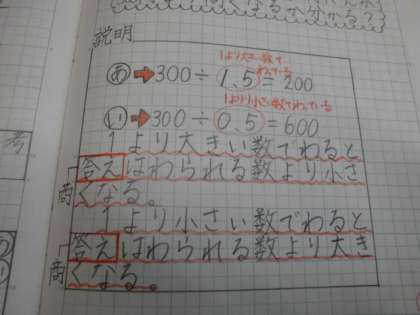 くなるか分かる?
説明
1より大きい数で
わっている
あ➡300÷1.5=200
1より小さい数でわっている
い➡300÷0.5=600
1より大きい数でわると
答えはわられる数より小さ
商
くなる。
1より小さい数でわると
答えはわられる数より大き
商
くなる。
考